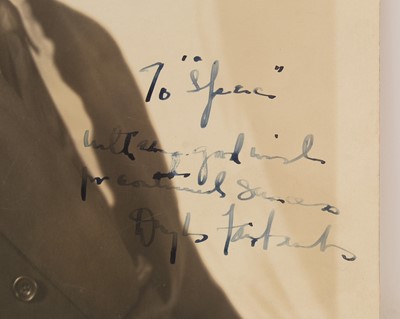 To "Spec"
with sincere good wish
for continued success
Douglas Fairbanks